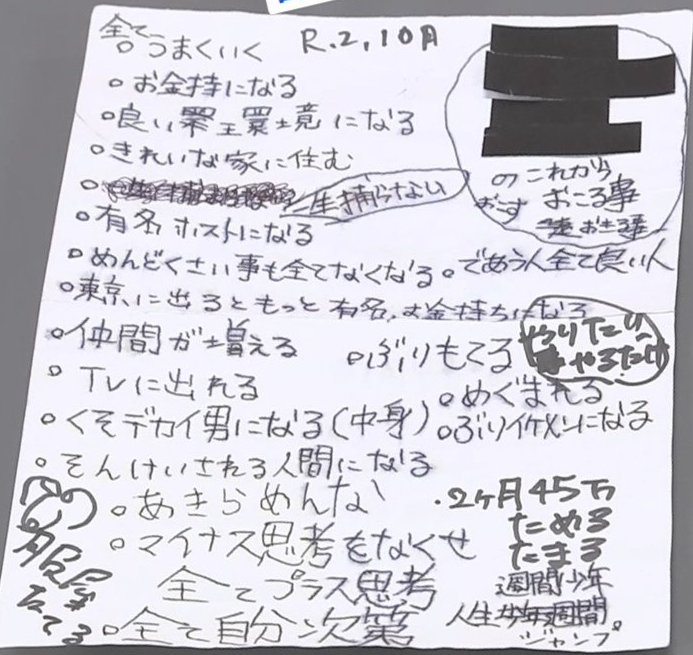 全て
。うまくいく
R.2,10月
。お金持になる
。良い環境になる
。きれいな家に住む
一生捕らない
。有名ホストになる
のこれから
おこす おこる事
。めんどくさい事も全てなくなる
。であう人全て良い人
。東京に出るともっと有名、お金持ちになる
。仲間が増える
。ぶりもてる
やりたい
やるだけ
。TVに出れる
。めぐまれる
。くそデカイ男になる(中身)
。ぶりイケメンになる
。そんけいされる人間になる
。あきらめんな
・2ヶ月45万
ためる
たまる
。マイナス思考をなくせ
全てプラス思考
週間少年
人生 週間
ジャンプ。
。全て自分次第
たてる